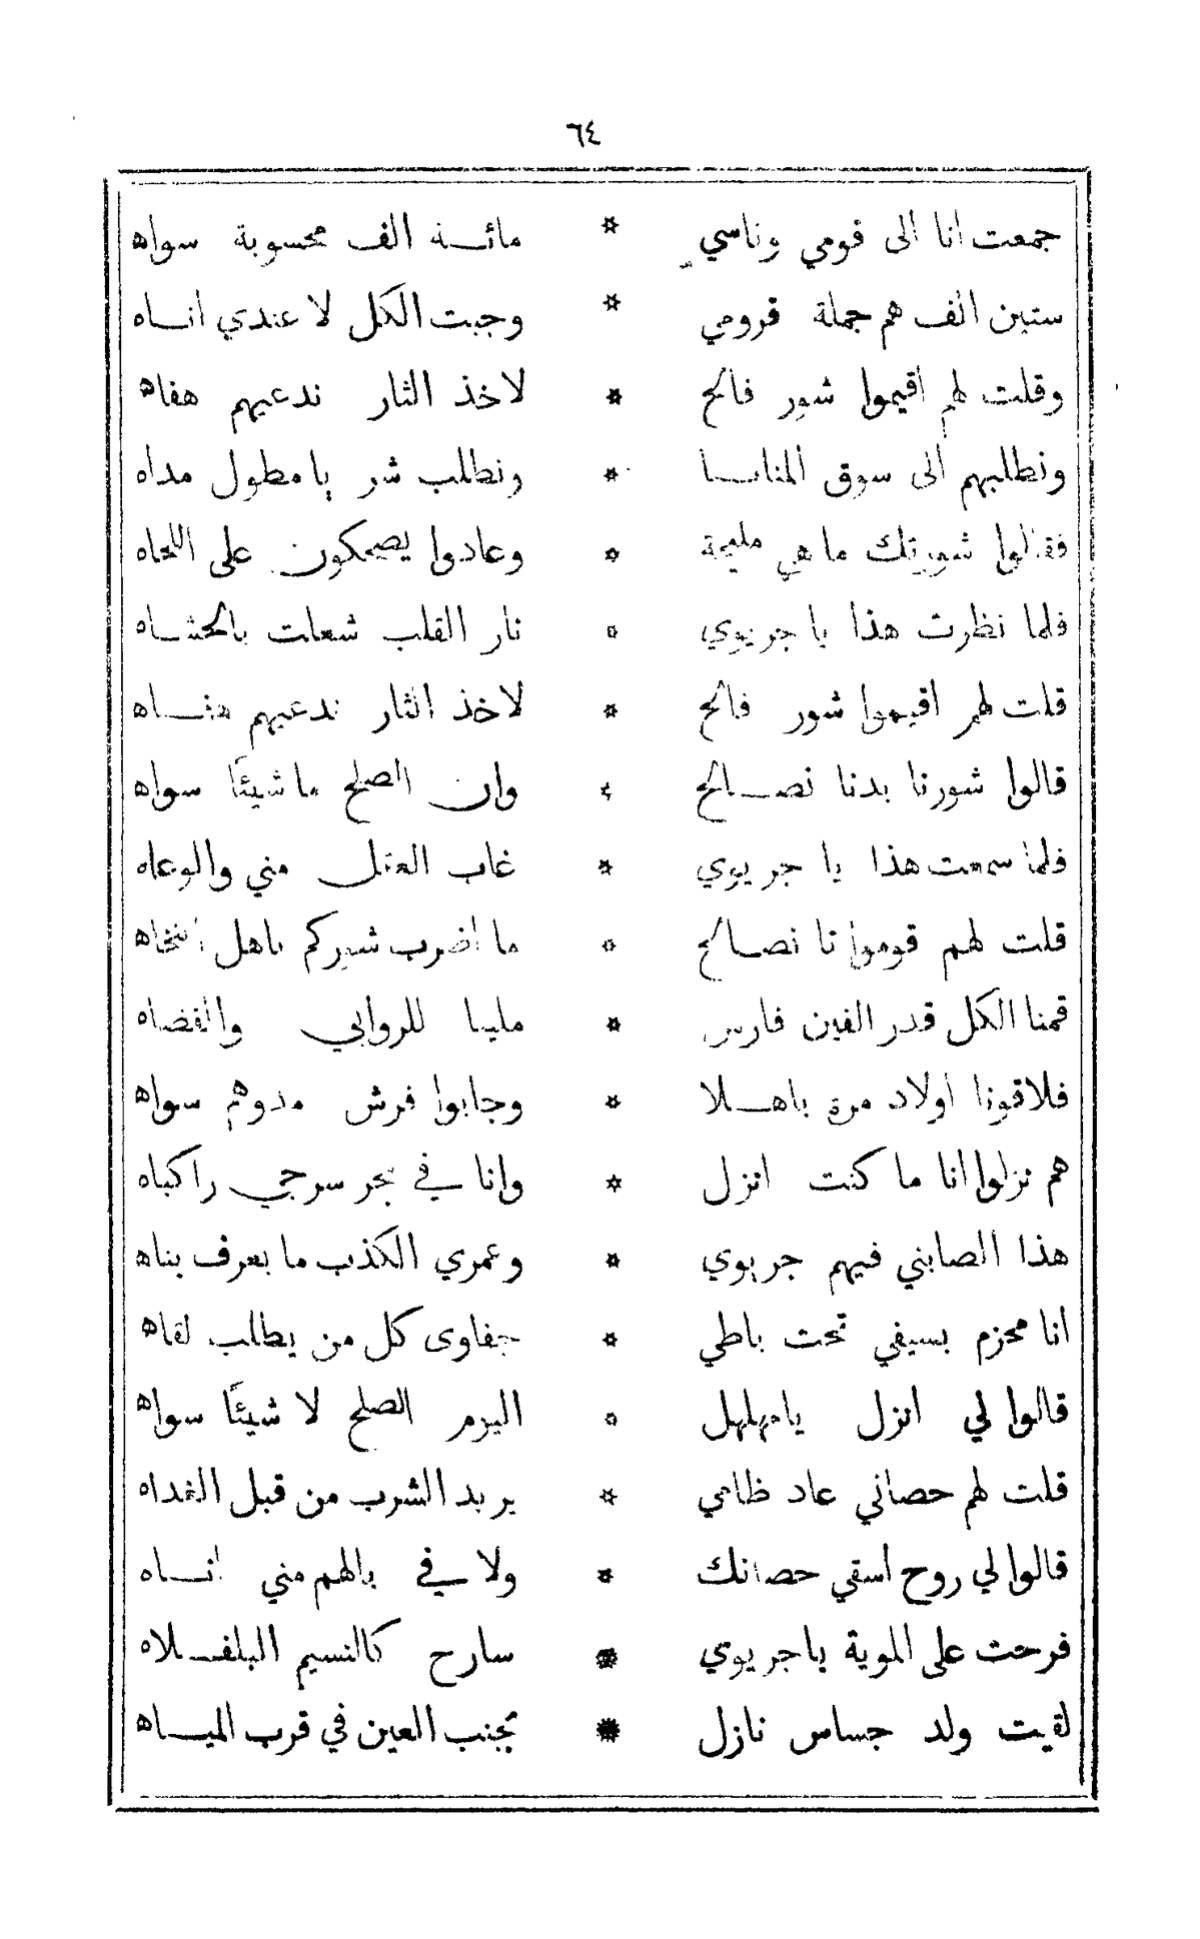 ٦٤
جمعت انا الى قومي وناسي * مائة الف محسوبة سواه
ستين الف هم جملة قرومي * وجبت الكل لا عندي انساه
وقلت لهم اقيموا شور فالح * لاخذ الثار ندعيهم هفاه
ونطلبهم الى سوق المنايا * ونطلب شر يا مطول مداه
فقالوا شورتك ما هي مليحة * وعادوا يضحكون على اللحاه
فلما نظرت هذا يا جريوي * نار القلب شعلت بالحشاه
قلت لهم اقيموا شور فالح * لاخذ الثار ندعيهم هفاه
قالوا شورنا بدنا نصالح * وان الصلح ما شيئًا سواه
فلما سمعت هذا يا جريوي * غاب العقل مني والوعاه
قلت لهم قوموا تا نصالح * ما اضرب شيركم ياهل النخاه
قمنا الكل قدر الفين فارس * مليا للروابي والفضاه
فلاقونا اولاد مرة باهلا * وجابوا فرش مدوهم سواه
هم نزلوا انا ما كنت انزل * وانا في بحر سرجي راكباه
هذا الصابني فيهم جريوي * وعمري الكذب ما بعرف بناه
انا محزم بسيفي تحت باطي * جفاوى كل من يطلب لقاه
قالوا لي انزل يامهلهل * اليوم الصلح لا شيئًا سواه
قلت لهم حصاني عاد ظامي * يريد الشرب من قبل الغداه
قالوا لي روح اسقي حصانك * ولا في بالهم مني انساه
فرحت على الموية ياجريوي * سارح كالنسيم البلفلاه
لقيت ولد جساس نازل * بجنب العين في قرب المياه